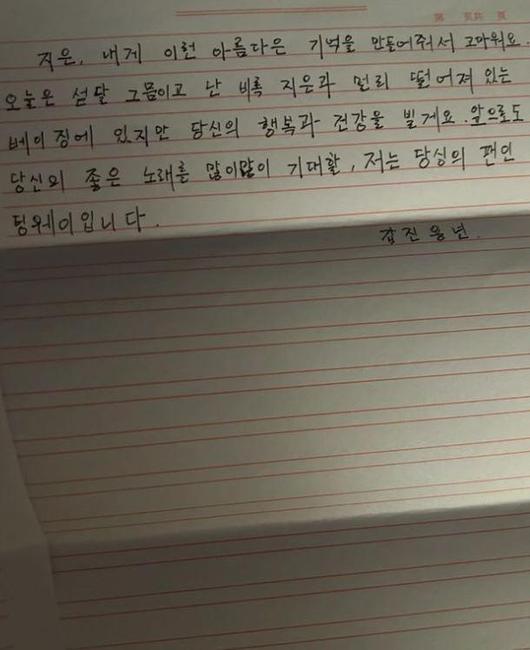 第 页共 页
지은, 내게 이런 아름다운 기억을 만들어줘서 고마워요.
오늘은 섣달 그믐이고 난 비록 지은과 멀리 떨어져 있는
베이징에 있지만 당신의 행복과 건강을 빌게요. 앞으로도
당신의 좋은 노래를 많이많이 기대할, 저는 당싱의 팬인
덩웨이입니다.
갑진용년.